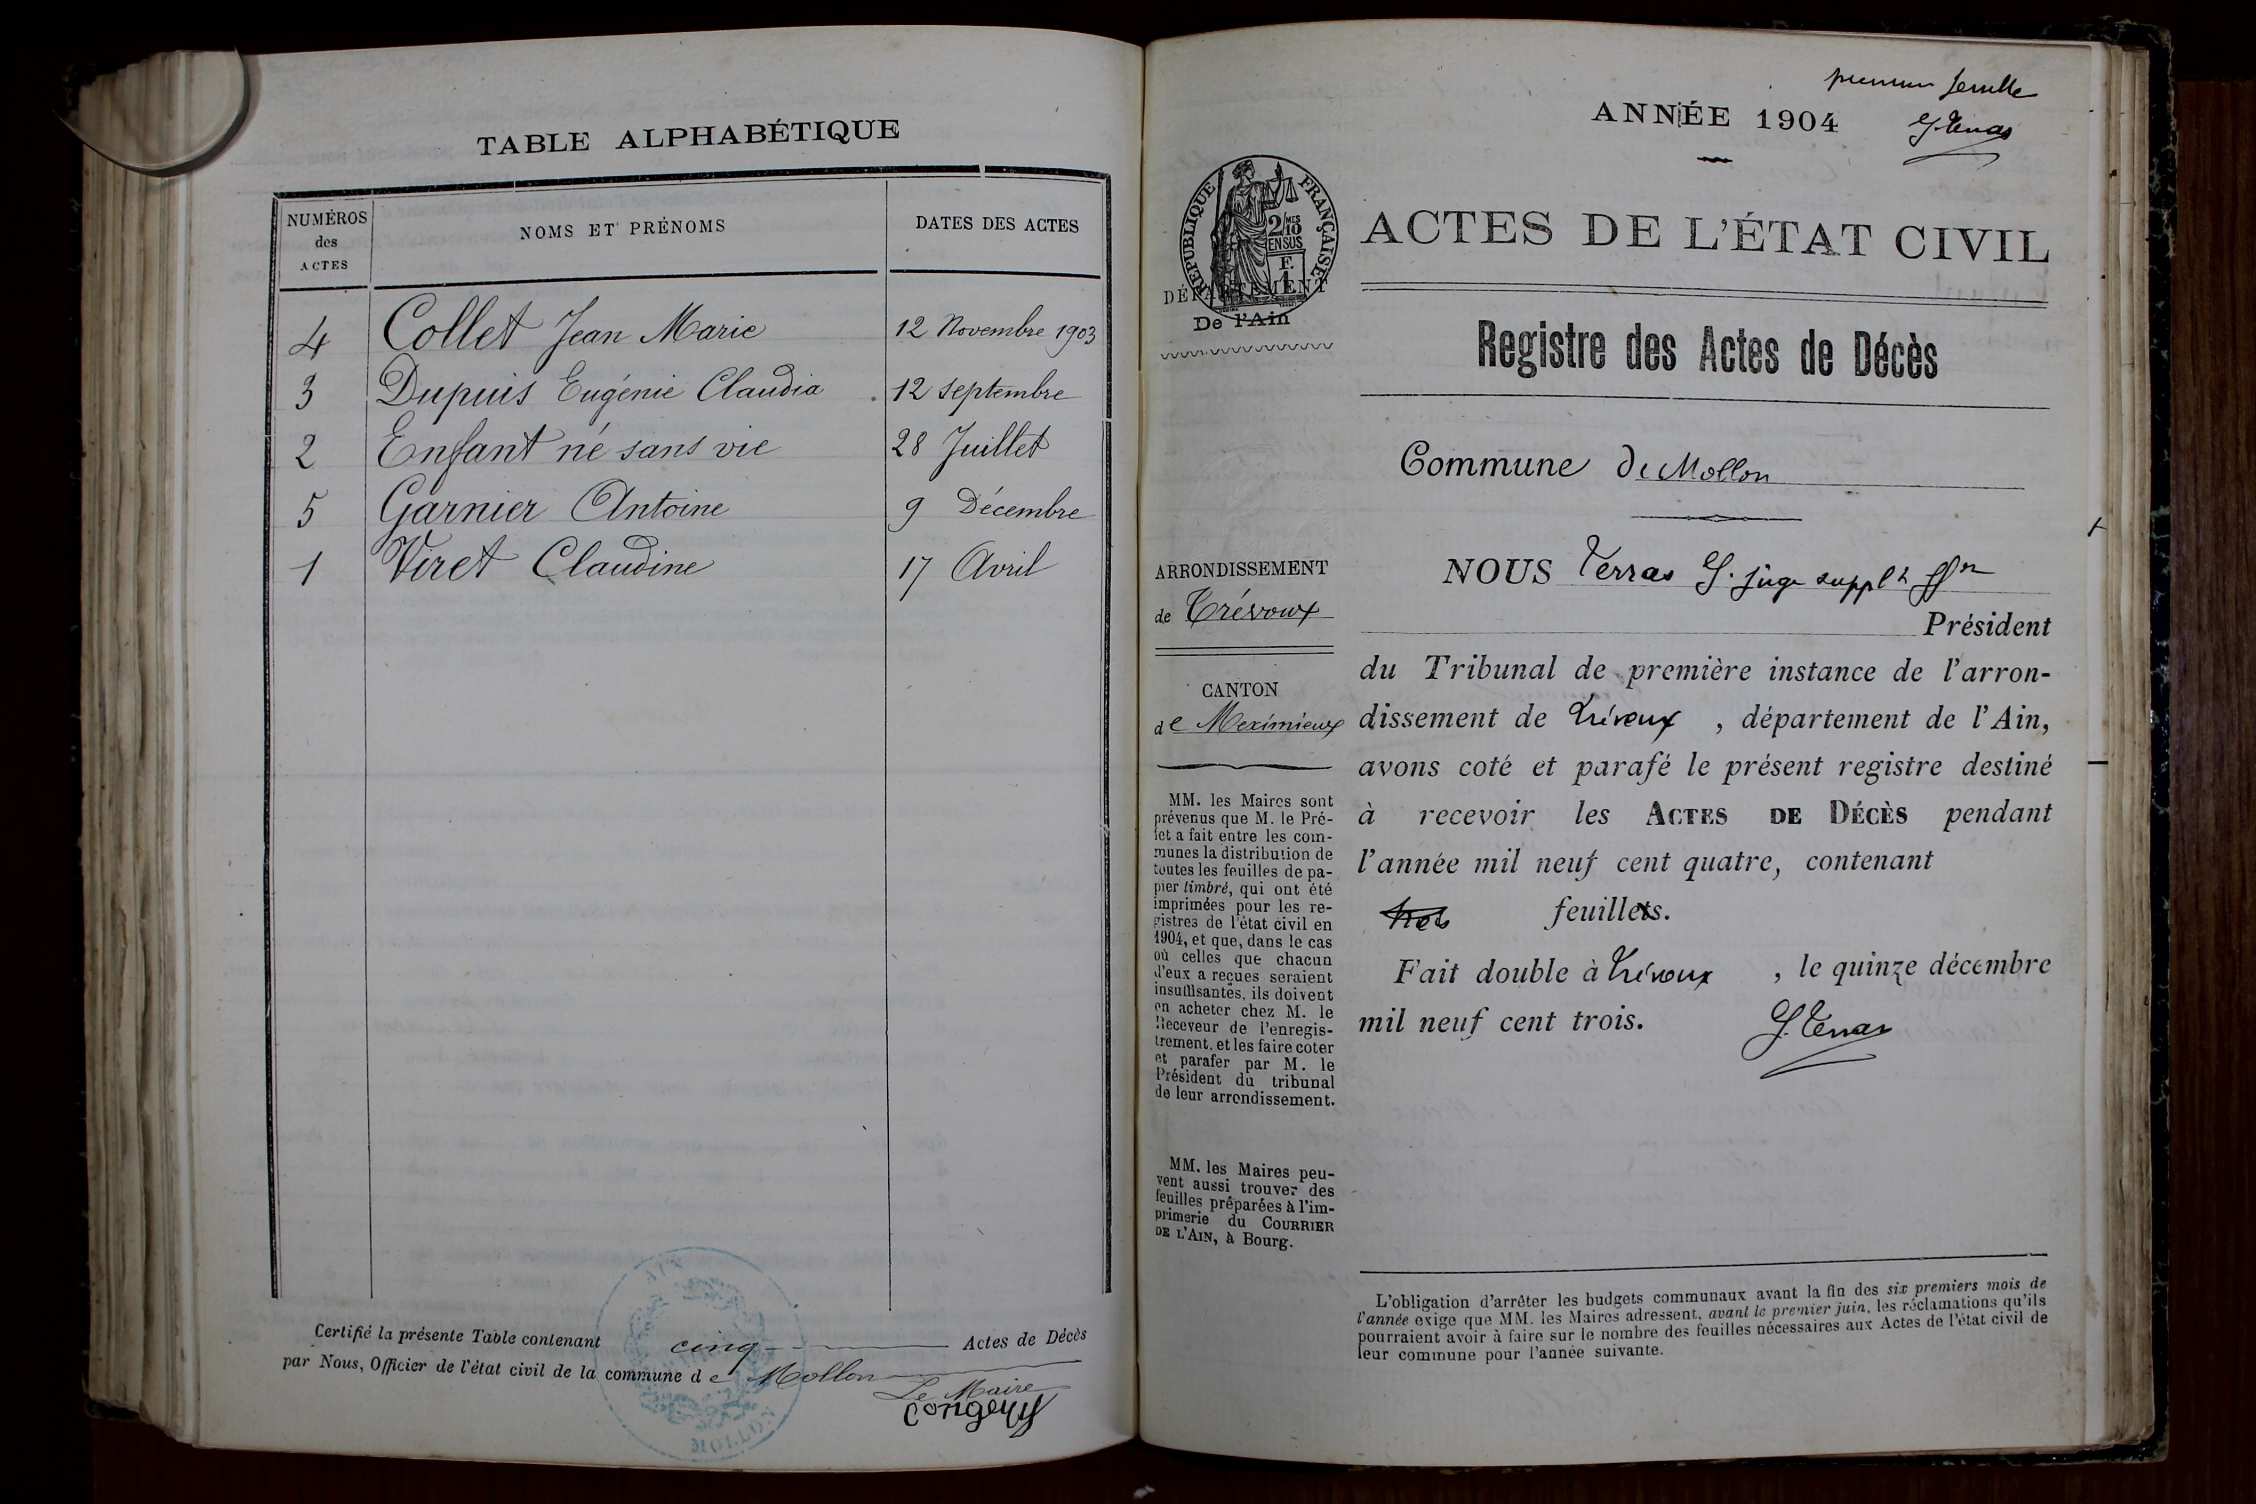 TABLE ALPHABÉTIQUE
NUMÉROS des ACTES
NOMS ET PRÉNOMS
DATES DES ACTES
4 Collet Jean Marie 12 Novembre 1903
3 Dupuis Eugénie Claudia 12 septembre
2 Enfant né sans vie 28 Juillet
5 Garnier Antoine 9 Décembre
1 Viret Claudine 17 Avril
Certifié la présente Table contenant cinq Actes de Décès
par Nous, Officier de l'état civil de la commune de Mollon
Le Maire
AIN
MOLLON
ANNÉE 1904
G. Terras
RÉPUBLIQUE FRANÇAISE
2/10 MES
EN SUS
F.
1
DÉPARTEMENT
De l'Ain
ARRONDISSEMENT
de Trévoux
CANTON
de Meximieux
MM. les Maires sont
prévenus que M. le Pré-
fet a fait entre les com-
munes la distribution de
toutes les feuilles de pa-
pier timbré, qui ont été
imprimées pour les re-
gistres de l'état civil en
1904, et que, dans le cas
où celles que chacun
d'eux a reçues seraient
insuffisantes, ils doivent
en acheter chez M. le
Receveur de l'enregis-
trement, et les faire coter
et parafer par M. le
Président du tribunal
de leur arrondissement.
MM. les Maires peu-
vent aussi trouver des
feuilles préparées à l'im-
primerie du COURRIER
DE L'AIN, à Bourg.
ACTES DE L'ÉTAT CIVIL
Registre des Actes de Décès
Commune de Mollon
NOUS Terras G. juge suppl^t ff^on
Président
du Tribunal de première instance de l'arron-
dissement de Trévoux , département de l'Ain,
avons coté et parafé le présent registre destiné
à recevoir les ACTES DE DÉCÈS pendant
l'année mil neuf cent quatre, contenant
trois feuillets.
Fait double à Trévoux , le quinze décembre
mil neuf cent trois.
G. Terras
L'obligation d'arrêter les budgets communaux avant la fin des six premiers mois de
l'année exige que MM. les Maires adressent, avant le premier juin, les réclamations qu'ils
pourraient avoir à faire sur le nombre des feuilles nécessaires aux Actes de l'état civil de
leur commune pour l'année suivante.